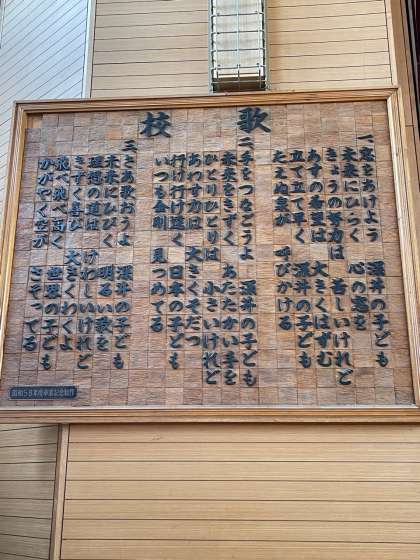 校歌
一、窓をあけよう 深井の子ども
未来にひらく 心の窓を
きょうの努力は 苦しいけれど
あすの希望は 大きくはずむ
立て立て早く 深井の子ども
たえぬ泉が 呼びかける
二、手をつなごうよ 深井の子ども
未来をきずく あたたかい手を
ひとりひとりは 小さいけれど
あわす力は 大きくそだつ
行け行け遠く 日本の子ども
いつも金剛 見つめてる
三、さあ歌おうよ 深井の子ども
未来にひびく 明るい歌を
理想の道は けわしいけれど
きずく喜び 大きくわくよ
飛べ飛べ高く 世界の子ども
かがやく空が さそってる
昭和58年度卒業記念制作